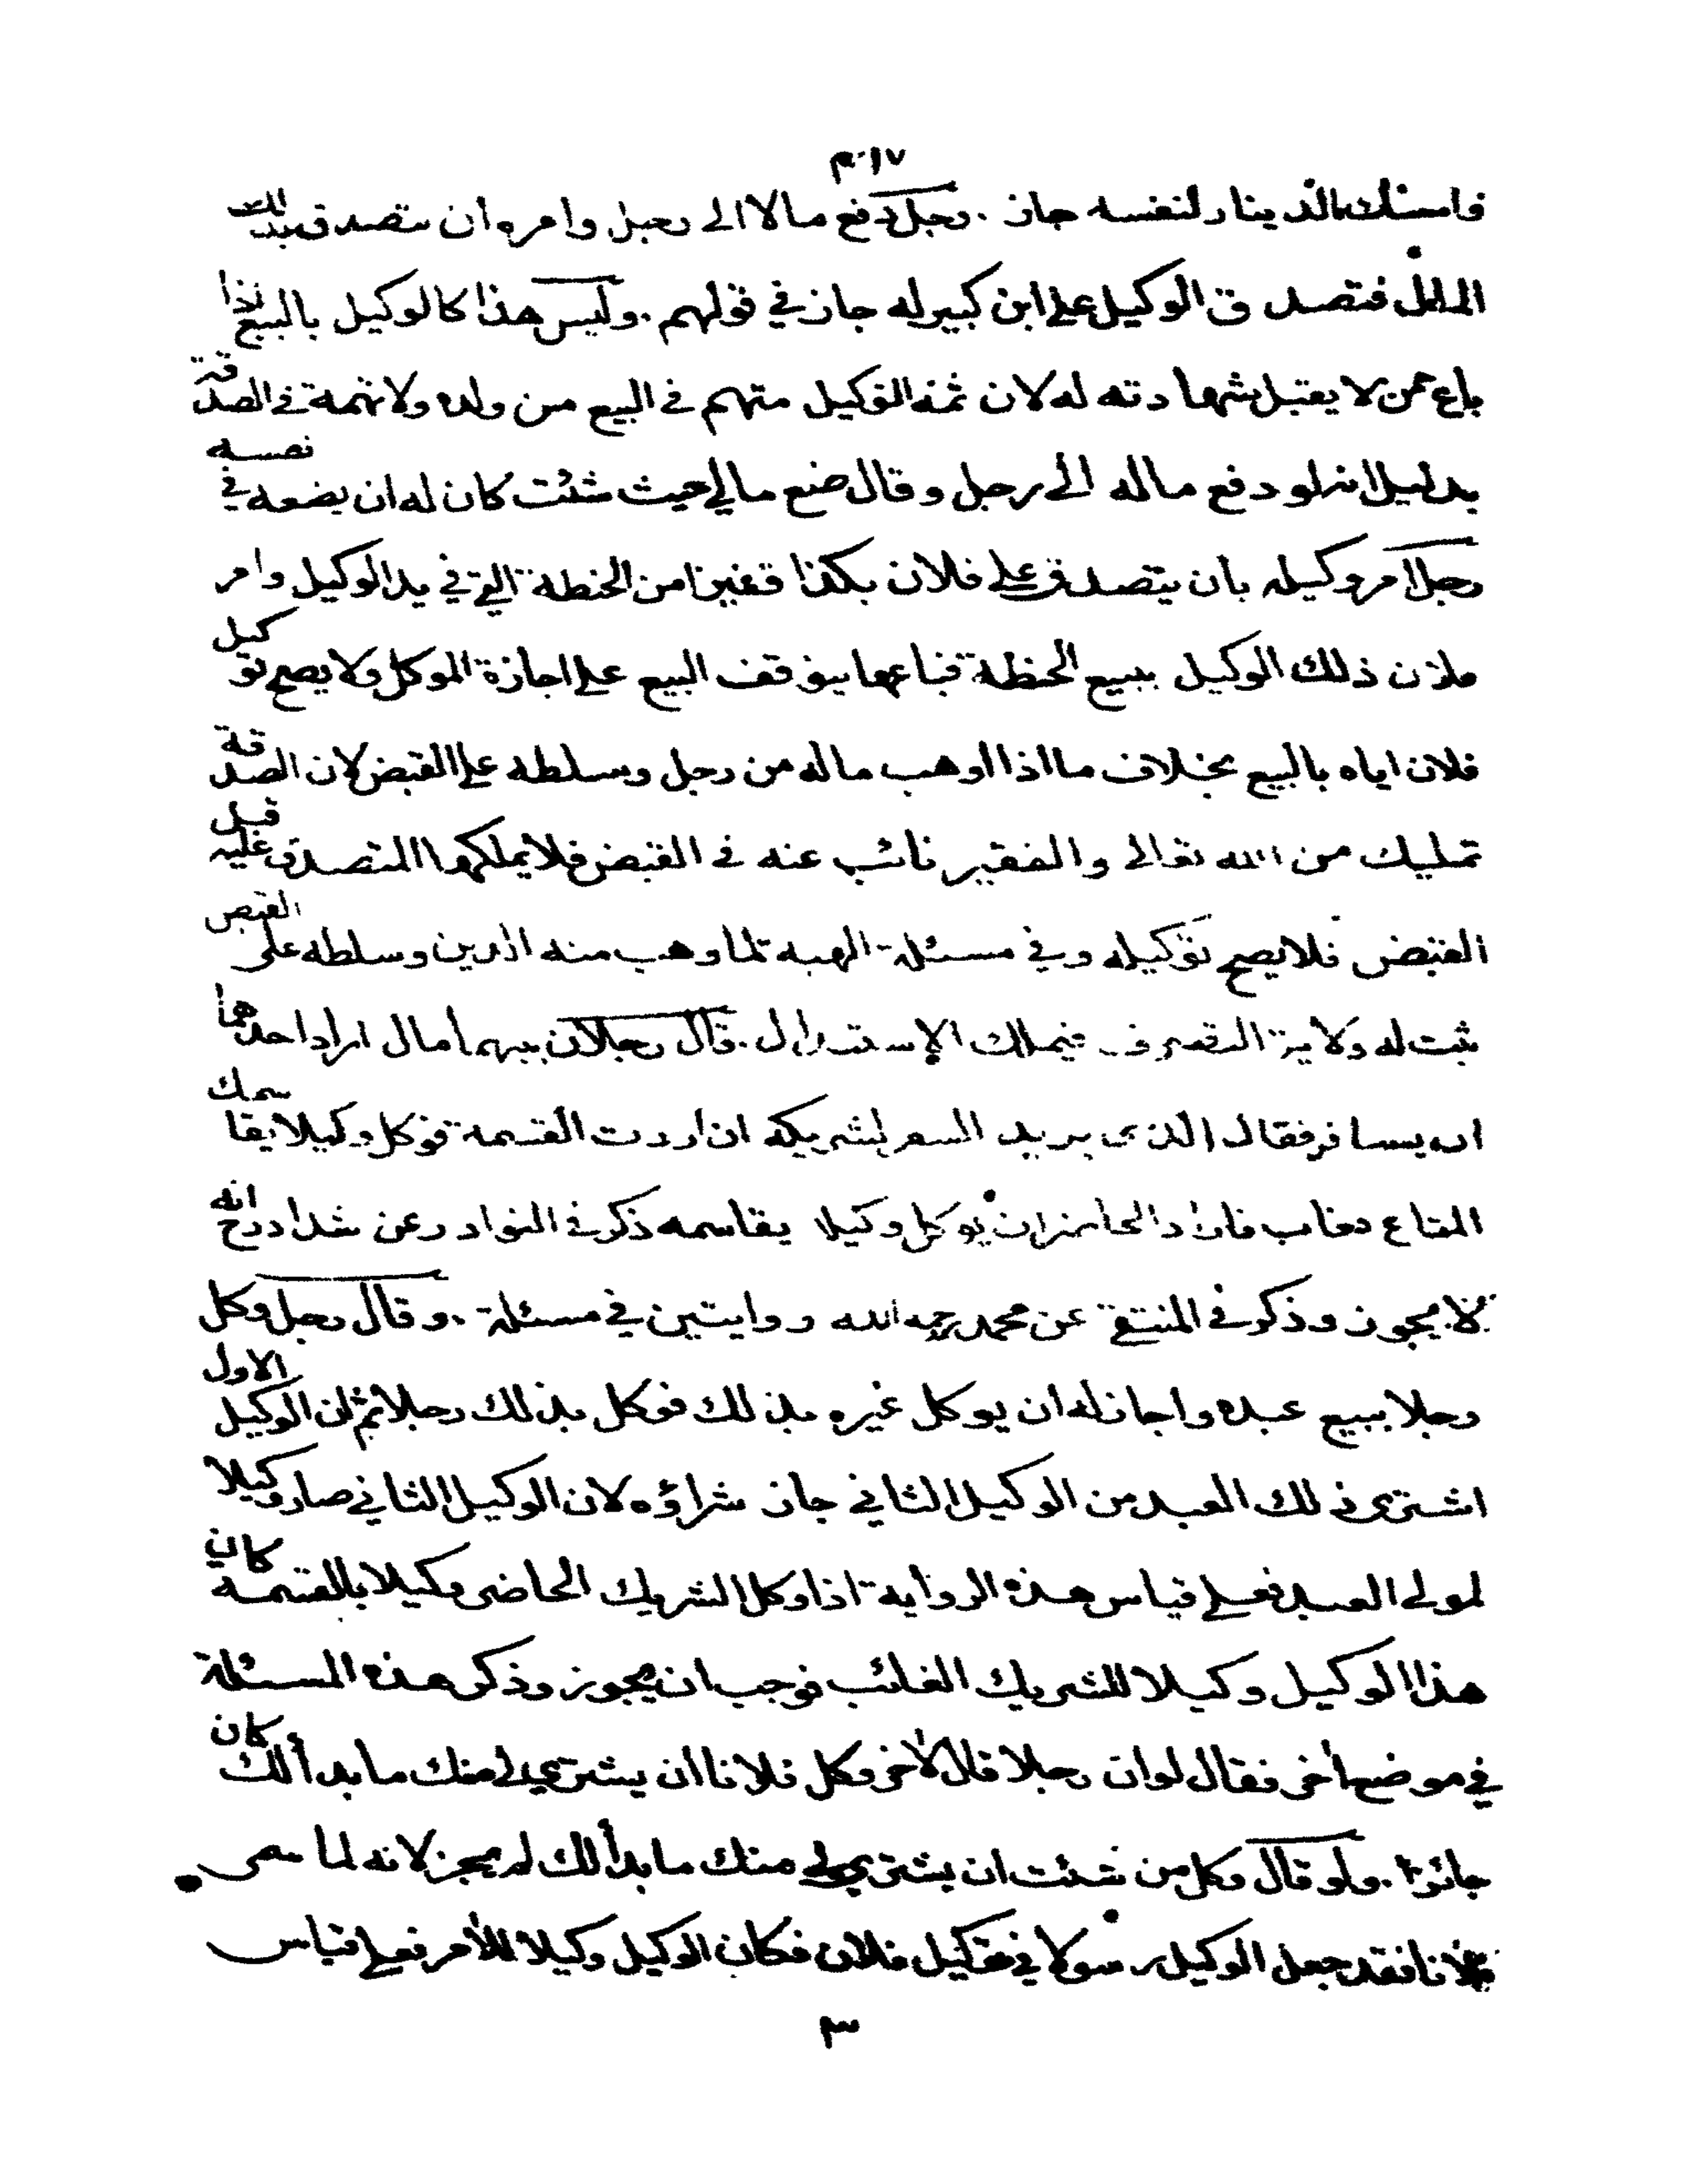 ١٧٠م
وامسك الدينار لنفسه جاز . رجل دفع مالا الى رجل وامره ان يتصدق بذلك
المال فتصدق الوكيل على ابن كبير له جاز في قولهم . وليس هذا كالوكيل بالبيع اذا
باع ممن لا يقبل شهادته له لان ثمه الوكيل متهم في البيع من ولده ولا تهمة في الصدقة
بدليل انه لو دفع ماله الى رجل وقال ضع مالي حيث شئت كان له ان يضعه في نفسه
رجل امر وكيله بان يتصدق على فلان بكذا قفيزا من الحنطة التي في يد الوكيل وامر
فلان ذلك الوكيل ببيع الحنطة فباعها يتوقف البيع على اجازة الموكل ولا يصح توكيل
فلان اياه بالبيع بخلاف ما اذا اوهب ماله من رجل وسلطه على القبض لان الصدقة
تمليك من الله تعالى والفقير نائب عنه في القبض فلا يملكها المتصدق عليه قبل
القبض فلا يصح توكيله وفي مسئلة الهبة لما وهب منه الدين وسلطه على القبض
ثبت له ولاية التصرف فيملك الاستبدال . قال رجلان بينهما مال اراد احدهما
ان يسافر فقال الذي يريد السفر لشريكه ان اردت القسمة فوكل وكيلا يقاسمك
المتاع فغاب فاراد الحاضر ان يوكل وكيلا يقاسمه ذكر في النوادر عن شداد رح انه
لا يجوز وذكر في المنتقى عن محمد رحمه الله روايتين في مسئلة . وقال رجل وكل
رجلا ببيع عبده واجاز له ان يوكل غيره بذلك فوكل بذلك رجلا ثم ان الوكيل الاول
اشترى ذلك العبد من الوكيل الثاني جاز شراؤه لان الوكيل الثاني صار وكيلا
لمولى العبد فعلى قياس هذه الرواية اذا وكل الشريك الحاضر وكيلا بالقسمة كان
هذا الوكيل وكيلا للشريك الغائب فوجب ان يجوز وذكر هذه المسئلة
في موضع أخر فقال لو ان رجلا قال لأخر وكل فلانا ان يشتري لي منك ما بدأ لك كان
جائزا . ولو قال وكل من شئت ان يشتري لي منك ما بدأ لك لم يجز لانه لما سمى
فلانا فقد جعل الوكيل رسولا في توكيل فلان فكان الوكيل وكيلا للأمر فعلى قياس
٣